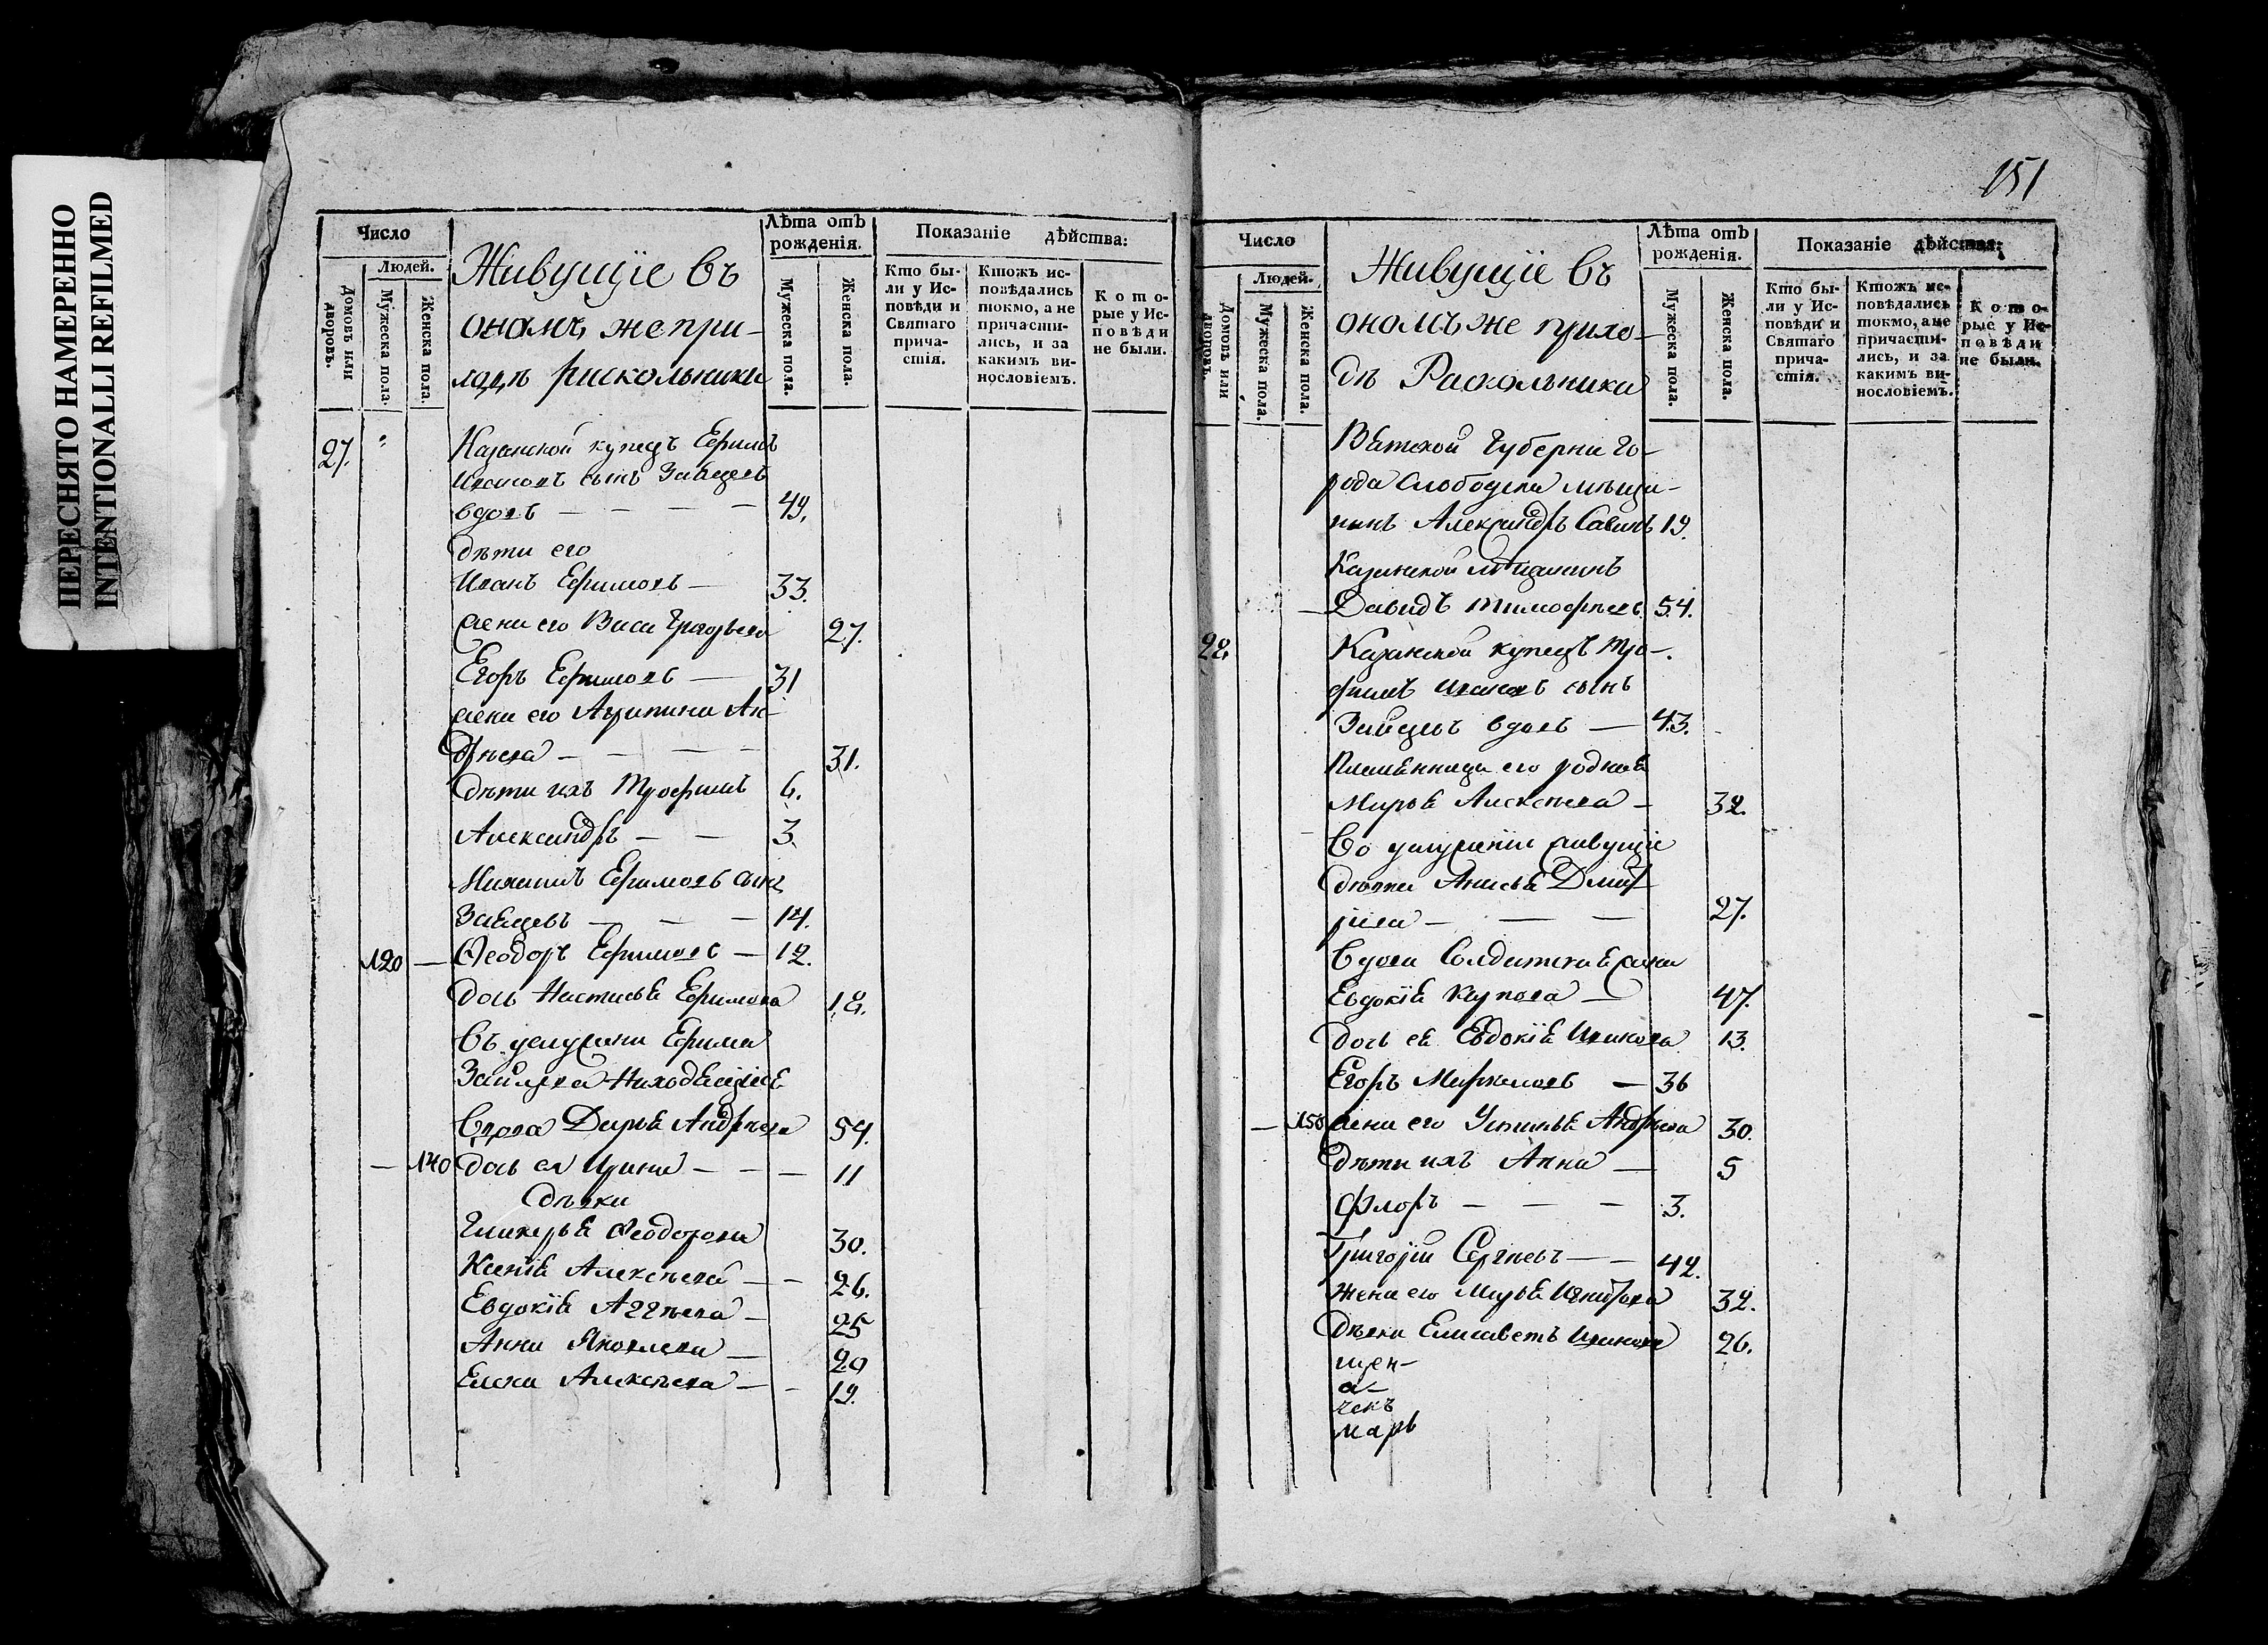 ПЕРЕСНЯТО НАМЕРЕННО
INTENTIONALLI REFILMED
151
Число
Людей.
Домовъ или дворовъ.
Мужеска пола.
Женска пола.
Живущіе въ
ономъ же при-
ходѣ раскольники
Лѣта отъ рожденія.
Мужеска пола.
Женска пола.
Показаніе дѣйства:
Кто бы-
ли у Ис-
повѣди и
Святаго
прича-
стія.
Ктожъ ис-
повѣдались
токмо, а не
причасти-
лись, и за
какимъ ви-
нословіемъ.
Кото-
рые у Ис-
повѣди
не были.
27. Казанской купецъ Ефимъ
Ивановъ сынъ Зайцевъ
вдовъ — — — — 49.
дѣти его
Иванъ Ефимовъ — 33.
жена его Васа 27.
Егоръ Ефимовъ — 31
жена его Агрипина Ан-
дрѣева — — — — 31.
дѣти ихъ Трофимъ 6.
Александръ — — 3.
Ефимовъ сынъ
Зайцевъ — — — 14.
120 — Ѳеодоръ Ефимовъ — 12.
дочь Настасья Ефимова 18.
Въ услужени Ефима
Зайцева находящіеся
Вдова Дарья Андрѣева 54.
— 140 дочь ея Ирина — — — 11
дѣвки
Гликерья Ѳеодорова 30.
Ксенія Алексѣева — — 26.
Евдокія Аггѣева — 25
Анна Яковлева — 20
Елена Алексѣева — — 19.
Число
Людей.
Домовъ или дворовъ.
Мужеска пола.
Женска пола.
Живущіе въ
ономъ же прихо-
дѣ Раскольники
Лѣта отъ рожденія.
Мужеска пола.
Женска пола.
Показаніе дѣйства:
Кто бы-
ли у Ис-
повѣди и
Святаго
прича-
стія.
Ктожъ ис-
повѣдались
токмо, а не
причасти-
лись, и за
какимъ ви-
нословіемъ.
Кото-
рые у Ис-
повѣди
не были.
Вятской Губерни го-
рода Слободска мѣща-
нинъ Александръ Савинъ 19.
Казанской мѣщанинъ
— Давидъ Тимофѣевъ 54.
28. Казанской купецъ Тро-
фимъ Ивановъ сынъ
Зайцевъ вдовъ — 43.
Племянница его родная
Марья Алексѣева — 32.
Во услужении живущіе
дѣвка Анисья Дмит
ріева — — — 27.
Вдова Солдатская жена
Евдокія Карпова — 47.
дочь ея Евдокія Иванова 13.
Егоръ Маркеловъ — 36
— 150 жена его Устинья Андрѣева 30.
дѣти ихъ Анна — 5
Флоръ — — — 3.
Григорій Сергѣевъ — — 42.
Жена его Марья 32.
Дѣвка Елисаветъ Иванова 26.
щен-
а-
чекъ
марь